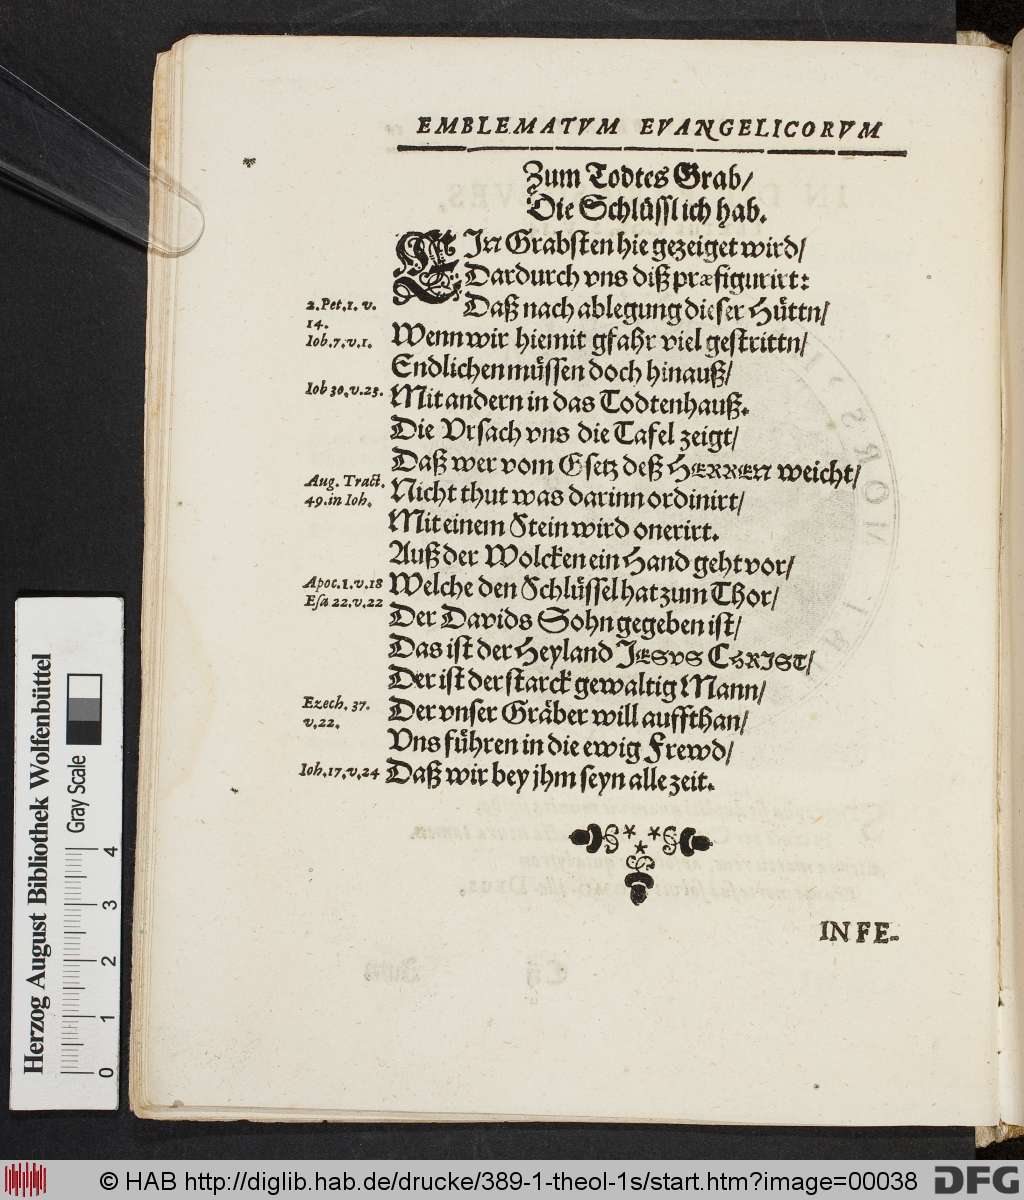 EMBLEMATVM EVANGELICORVM
Zum Todtes Grab/
Die Schlüssl ich hab.
EIn Grabsten hie gezeiget wird/
Dardurch vns diß præfigurirt:
Daß nach ablegung dieser Hüttn/
2. Pet. 1. v. 14.
Wenn wir hiemit gfahr viel gestrittn/
Iob. 7. v. 1.
Endlichen müssen doch hinauß/
Iob 30. v. 23.
Mit andern in das Todtenhauß.
Die Vrsach vns die Tafel zeigt/
Daß wer vom Gsetz deß HERREN weicht/
Aug. Tract. 49. in Ioh.
Nicht thut was darinn ordinirt/
Mit einem Stein wird onerirt.
Auß der Wolcken ein Hand geht vor/
Apoc. 1. v. 18
Welche den Schlüssel hat zum Thor/
Esa 22. v. 22
Der Davids Sohn gegeben ist/
Das ist der Heyland JESVS CHRIST/
Der ist der starck gewaltig Mann/
Ezech. 37. v. 22.
Der vnser Gräber will auffthan/
Vns führen in die ewig Frewd/
Ioh. 17. v. 24
Daß wir bey jhm seyn alle zeit.
IN FE-
Herzog August Bibliothek Wolfenbüttel
Gray Scale
0 1 2 3 4
© HAB http://diglib.hab.de/drucke/389-1-theol-1s/start.htm?image=00038
DFG